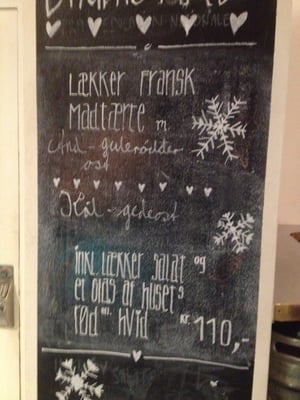 Lækker Fransk
Madtærte m
And - gulerødder
ost
Kål - gedeost
inkl. Lækker salat og
et glas af husets
rød el. hvid kr. 110,-